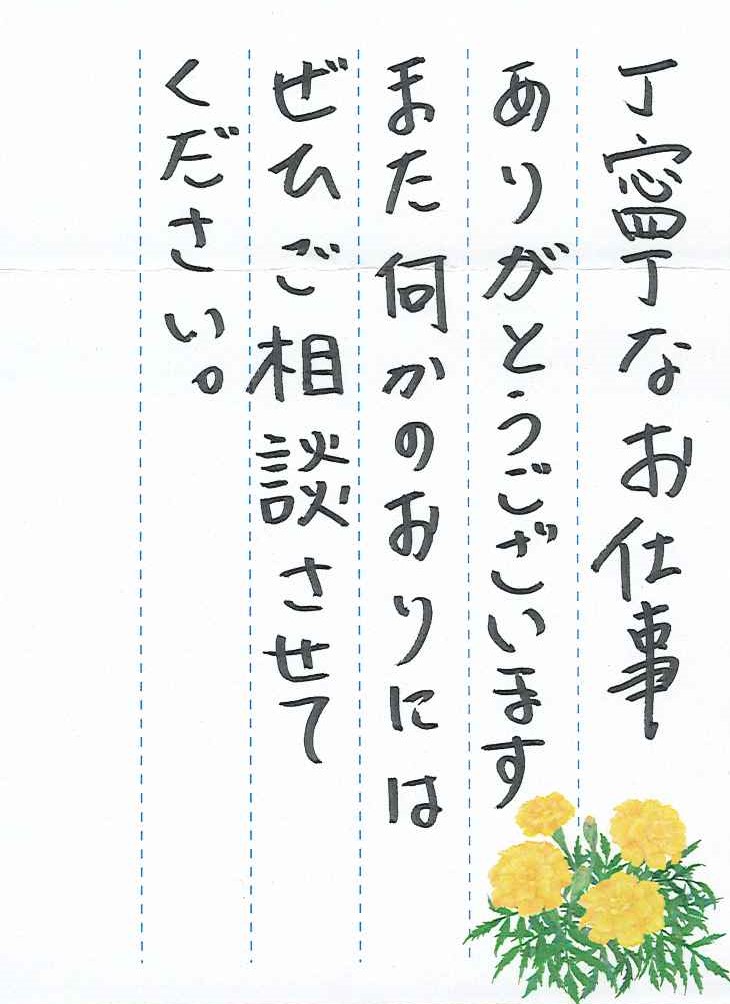 丁寧丁なお仕事
ありがとうございます
また何かのおりには
ぜひご相談させて
ください。